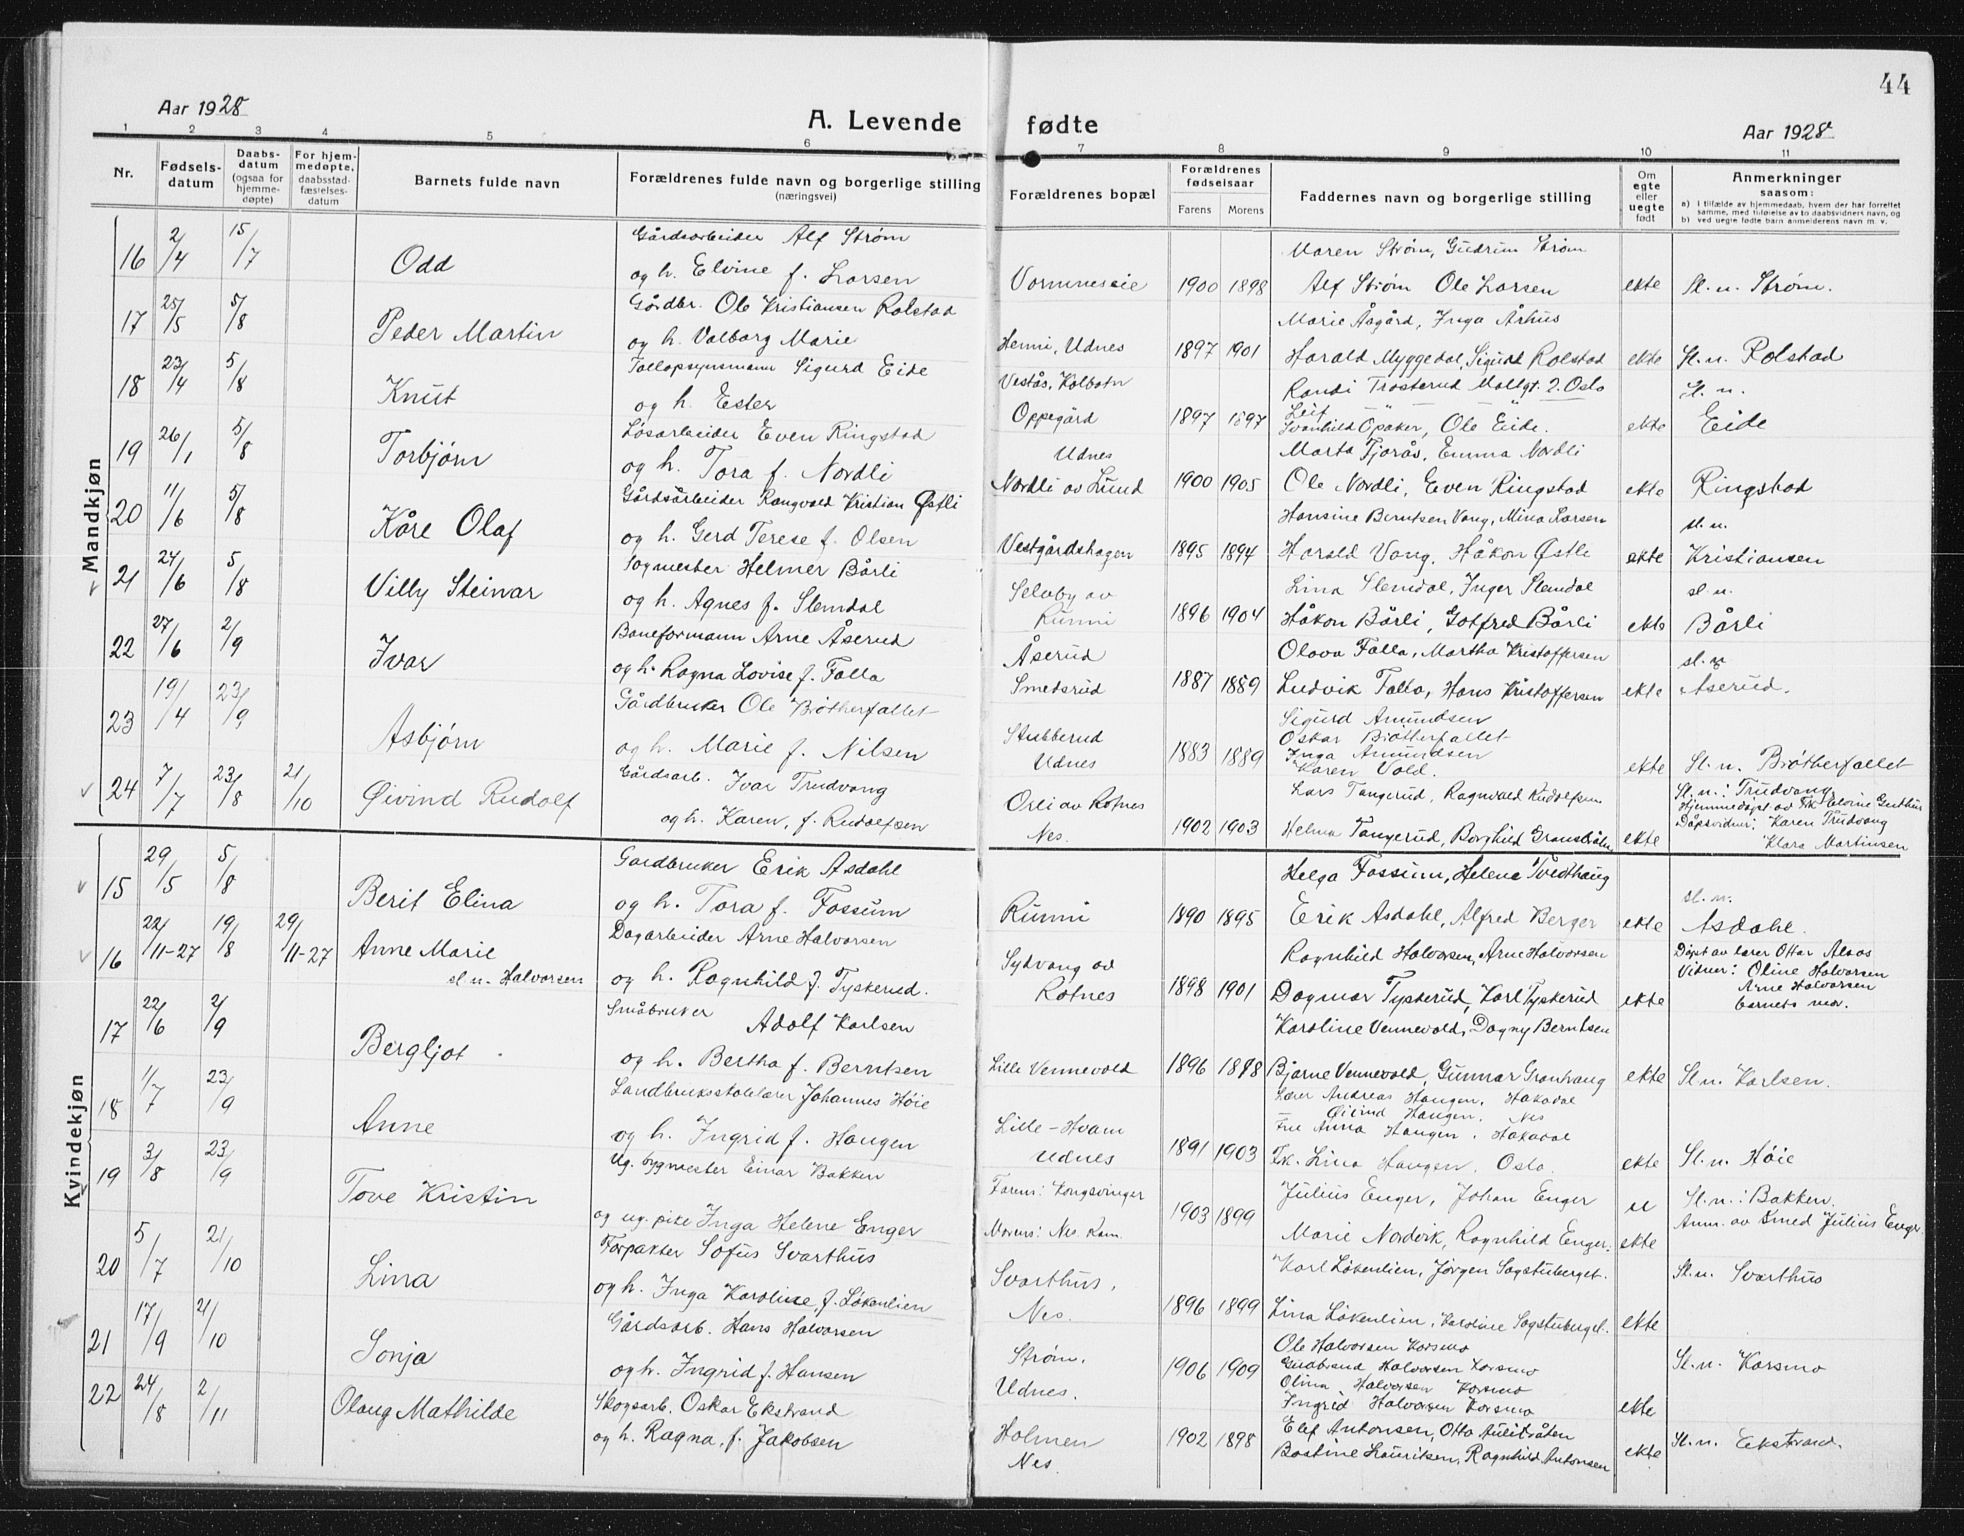 44
Aar 1928
A. Levende fødte
Aar 1928
1 2 3 4 5 6 7 8 9 10 11
Nr.
Fødsels-
datum
Daabs-
datum
(ogsaa for
hjemme-
døpte)
For hjem-
medøpte,
daabsstad-
fæstelses-
datum
Barnets fulde navn
Forældrenes fulde navn og borgerlige stilling
(næringsvei)
Forældrenes bopæl
Forældrenes
fødselsaar
Farens Morens
Faddernes navn og borgerlige stilling
Om
egte
eller
uegte
født
Anmerkninger
saasom:
a) I tilfælde av hjemmedaab, hvem der har forrettet
samme, med tilføielse av to daabsvidners navn, og
b) ved uegte fødte barn anmelderens navn m. v.
Mandkjøn
16 2/4 15/7 Odd
Gårdsarbeider Alf Strøm
og h. Elvine f. Larsen
Vormneseie 1900 1898
Maren Strøm, Gudrun Strøm
Alf Strøm Ole Larsen
ekte Sl. n. Strøm.
17 25/5 5/8 Peder Martin
Gårdbr. Ole Kristiansen Rolstad
og h. Valborg Marie
Henni, Udnes 1897 1901
Marie Åsgård, Inga Århus
Harald Myggedal, Sigurd Rolstad
ekte Sl. n. Rolstad
18 23/4 5/8 Knut
Tollopsynsmann Sigurd Eide
og h. Ester
Vestås, Kolbotn
Oppegård 1897 1897
Randi Trosterud Møllgt. 2. Oslo
Leif " "
Svanhild Opaker, Ole Eide.
ekte Sl. n.
Eide
19 26/1 5/8 Torbjørn
Løsarbeider Even Ringstad
og h. Tora f. Nordli
Udnes
Nordli av Lund 1900 1905
Marta Tjorås, Emma Nordli
Ole Nordli, Even Ringstad
ekte Ringstad
20 11/6 5/8 Kåre Olaf
Gårdsarbeider Rangvald Kristian Østli
og h. Gerd Terese f. Olsen
Vestgårdshagen 1895 1894
Hansine Berntsen Vang, Mina Larsen
Harald Vang. Håkon Østli
ekte sl. n.
Kristiansen
21 24/6 5/8 Villy Steinar
Sogmester Helmer Bårli
og h. Agnes f. Slemdal
Selvby av
Runni 1896 1904
Lina Slemdal, Inger Slemdal
Håkon Bårli, Gotfred Bårli
ekte sl. n.
Bårli
22 27/6 2/9 Ivar
Baneformann Arne Åserud
og h. Ragna Lovise f. Falla
Åserud
Smedsrud 1887 1889
Olava Falla, Martha Kristoffersen
Ludvik Falla, Hans Kristoffersen
ekte sl. n
Aserud.
23 19/4 23/9 Asbjørn
Gårdbruker Ole Brøtherfallet
og h. Marie f. Nilsen
Stubberud
Udnes 1883 1889
Sigurd Amundsen
Oskar Brøtherfallet
Inga Amundsen
Karen Vold.
ekte Sl. n. Brøtherfallet
24 7/7 23/8 21/10 Øivind Rudolf
Gårdsarb. Ivar Trudvang
og h. Karen, f. Rudolfsen
Orli av Rotnes
Nes. 1902 1903
Lars Tangerud, Ragnvald Rudolfsen
Helma Tangerud, Borghild Gransbråten
ekte Sl. n.: Trudvang.
Hjemmedøpt av Frk. Elvine
Dåpsvidner: Karen Trudvang
Klara Martinsen
Kvindekjøn
15 29/5 5/8 Berit Elina
Gardbruker Erik Asdahl
og h. Tora f. Fossum
Runni 1890 1895
Helga Fossum, Helene Tvedthaug
Erik Asdahl, Alfred Berger
ekte sl. n.
Asdahl.
16 22/11-27 19/8 29/11-27 Anne Marie
sl. n. Halvorsen
Dagarbeider Arne Halvorsen
og h. Ragnhild f. Tyskerud.
Sydvang av
Rotnes 1898 1901
Ragnhild Halvorsen, Arne Halvorsen
Dagmar Tyskerud, Karl Tyskerud
ekte Døpt av lærer Ottar Alsos
Vidner: Oline Halvorsen
Arne Halvorsen
barnets mor.
17 22/6 2/9 Bergljot
Småbruker
Adolf Karlsen
og h. Bertha f. Berntsen
Lille Vennevold 1896 1898
Karoline Vennevold, Dagny Berntsen
Bjarne Vennevold, Gunnar Granhaug
ekte Sl. n. Karlsen.
18 11/7 23/9 Anne
Landbruksskolelærer Johannes Høie
og h. Ingrid f. Haugen
Lille-Hvam
Udnes 1891 1903
Lærer Andreas Haugen, Hakadal
Øivind Haugen. Nes
Frue Anna Haugen. Hakadal
Frk. Lina Haugen. Oslo.
ekte Sl. n. Høie
19 3/8 23/9 Tove Kristin
Ug. bygmester Einar Bakken
og ug. pike Inga Helene Enger
Farens: Kongsvinger
Morens: Nes Rom. 1903 1899
Julius Enger, Johan Enger
Marie Nordvik, Ragnhild Enger.
u
ekte
Sl. n.: Bakken.
Anm. av Smed Julius Enger
20 5/7 21/10 Lina
Forpakter Sofus Svarthus
og h. Inga Karoline, f. Løkenlien
Svarthus,
Nes. 1896 1899
Karl Løkenlien, Jørgen Sagstuberget.
Lina Løkenlien, Karoline Sagstuberget.
ekte Sl. n. Svarthus
21 17/9 21/10 Sonja
Gårdsarb. Hans Halvorsen
og h. Ingrid f. Hansen
Strøm.
Udnes. 1906 1909
Ole Halvorsen Korsmo
Gudbrand Halvorsen Korsmo
Olina Halvorsen Korsmo
Ingrid Halvorsen Korsmo
ekte Sl. n. Korsmo
22 24/8 2/11 Olaug Mathilde
Skogsarb. Oskar Ekstrand
og h. Ragna, f. Jakobsen
Holmen
Nes. 1902 1898
Elef Antonsen, Otto Aulitråten
Bastine Lauritsen, Ragnhild Antonsen
ekte Sl. n. Ekstrand.